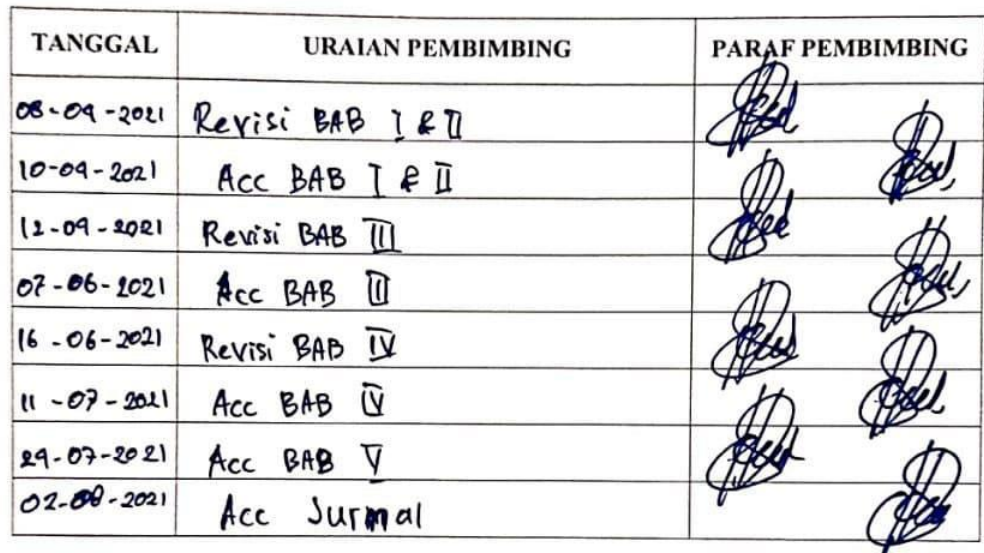 TANGGAL URAIAN PEMBIMBING PARAF PEMBIMBING
08-09-2021 Revisi BAB I & II
10-09-2021 Acc BAB I & II
12-09-2021 Revisi BAB III
07-06-2021 Acc BAB III
16-06-2021 Revisi BAB IV
11-07-2021 Acc BAB IV
29-07-2021 Acc BAB V
02-08-2021 Acc Jurmal